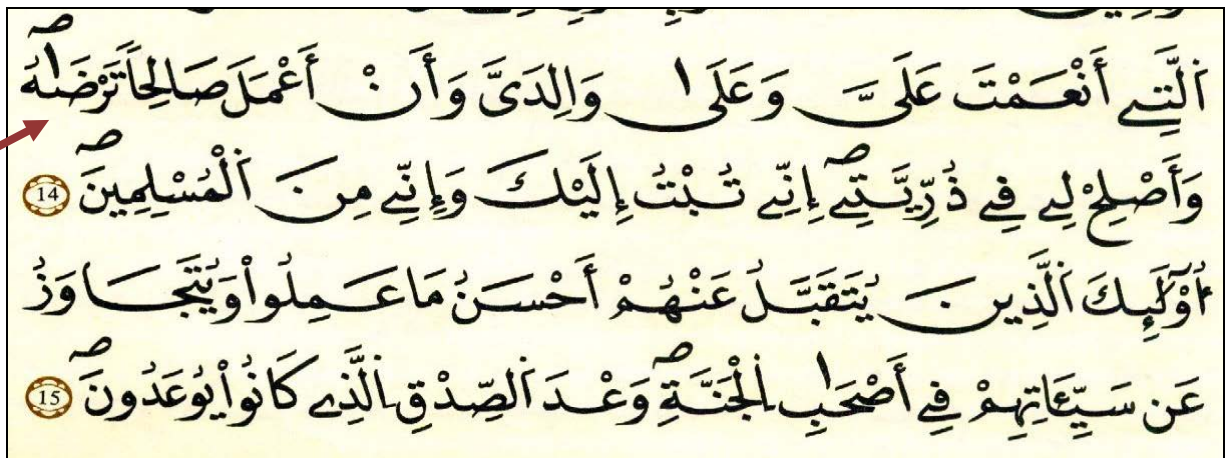 اَ۬لتِےٓ أَنْعَمْتَ عَلَيَّ وَعَلَيٰ وَٰلِدَيَّ وَأَنْ أَعْمَلَ صَٰلِحاٗ تَرْضَيٰهُ صۖ
وَأَصْلِحْ لِے فِے ذُرِّيَّتِيَۖ إِنِّے تُبْتُ إِلَيْكَ وَإِنِّے مِنَ اَ۬لْمُسْلِمِينَۖ 14
أُوْلَٰٓئِكَ اَ۬لذِينَ يُتَقَبَّلُ عَنْهُمْ أَحْسَنُ مَا عَمِلُواْ وَيُتَجَاوَزُ
عَن سَيِّـَٔاتِهِمْ فِے أَصْحَٰبِ اِ۬لْجَنَّةِۖ وَعْدَ اَ۬لصِّدْقِ اِ۬لذِے كَانُواْ يُوعَدُونَۖ 15